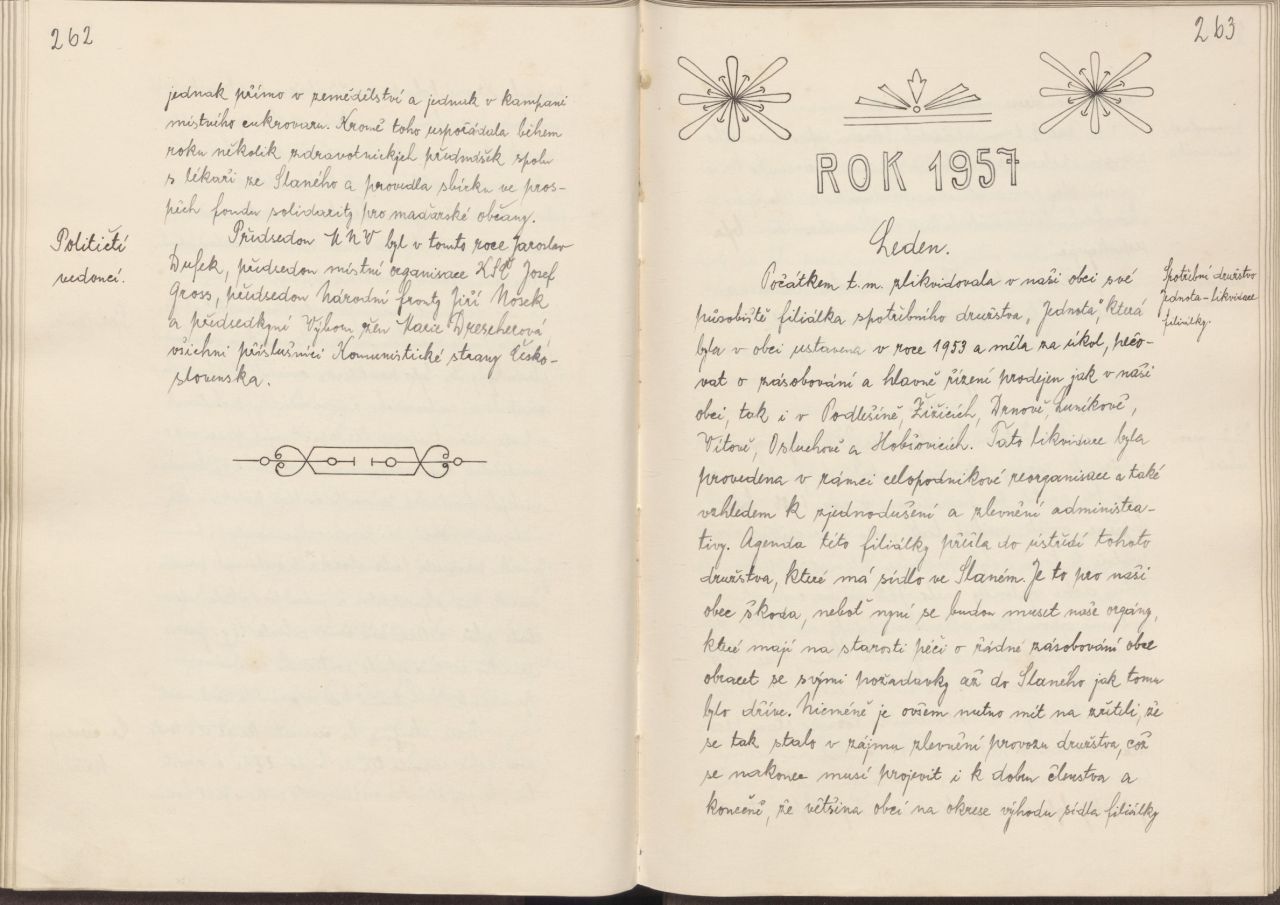 262
jednak přímo v zemědělství a jednak v kampani
místního cukrovaru. Kromě toho uspořádala během
roku několik zdravotnických přednášek spolu
s lékaři ze Slaného a provedla sbírku ve pros-
pěch fondu solidarity pro maďarské občany.
Političtí
vedoucí.
Předsedou MNV byl v tomto roce Jaroslav
Dufek, předsedou místní organisace KSČ Josef
Gross, předsedou Národní fronty Jiří Nosek
a předsedkyní Výboru žen Marie Drescherová
všichni příslušníci Komunistické strany Česko-
slovenska.
263
ROK 1957
Leden.
Spotřební družstvo
Jednota - likvidace
filiálky.
Počátkem t.m. zlikvidovala v naší obci své
působiště filiálka spotřebního družstva „Jednota“, která
byla v obci ustavena v roce 1953 a měla za úkol, pečo-
vat o zásobování a hlavně řízení prodejen jak v naší
obci, tak i v Podlešíně, Žižicích, Drnově, Luníkově,
Vítově, Osluchově a Hobšovicích. Tato likvidace byla
provedena v rámci celopodnikové reorganisace a také
vzhledem k zjednodušení a zlevnění administra-
tivy. Agenda této filiálky přešla do ústředí tohoto
družstva, které má sídlo ve Slaném. Je to pro naši
obec škoda, neboť nyní se budou muset naše orgány,
které mají na starosti péči o řádné zásobování obce
obracet se svými požadavky až do Slaného jak tomu
bylo dříve. Nicméně je ovšem nutno mít na zřeteli, že
se tak stalo v zájmu zlevnění provozu družstva, což
se nakonec musí projevit i k dobru členstva a
konečně, že většina obcí na okrese výhodu sídla filiálky